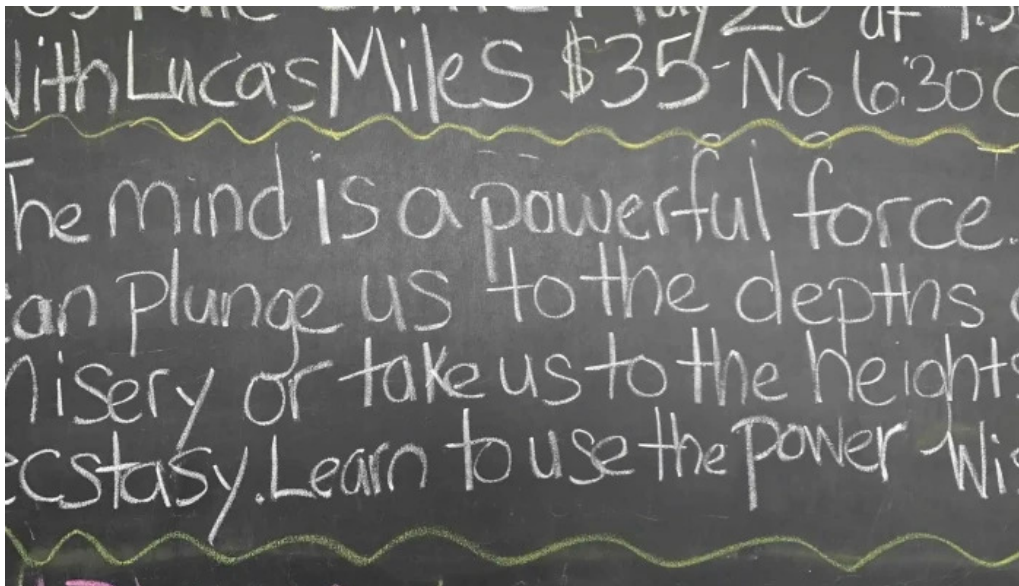 With Lucas Miles $35 - No 6:30
The mind is a powerful force.
can plunge us to the depths
misery or take us to the heights
ecstasy. Learn to use the power